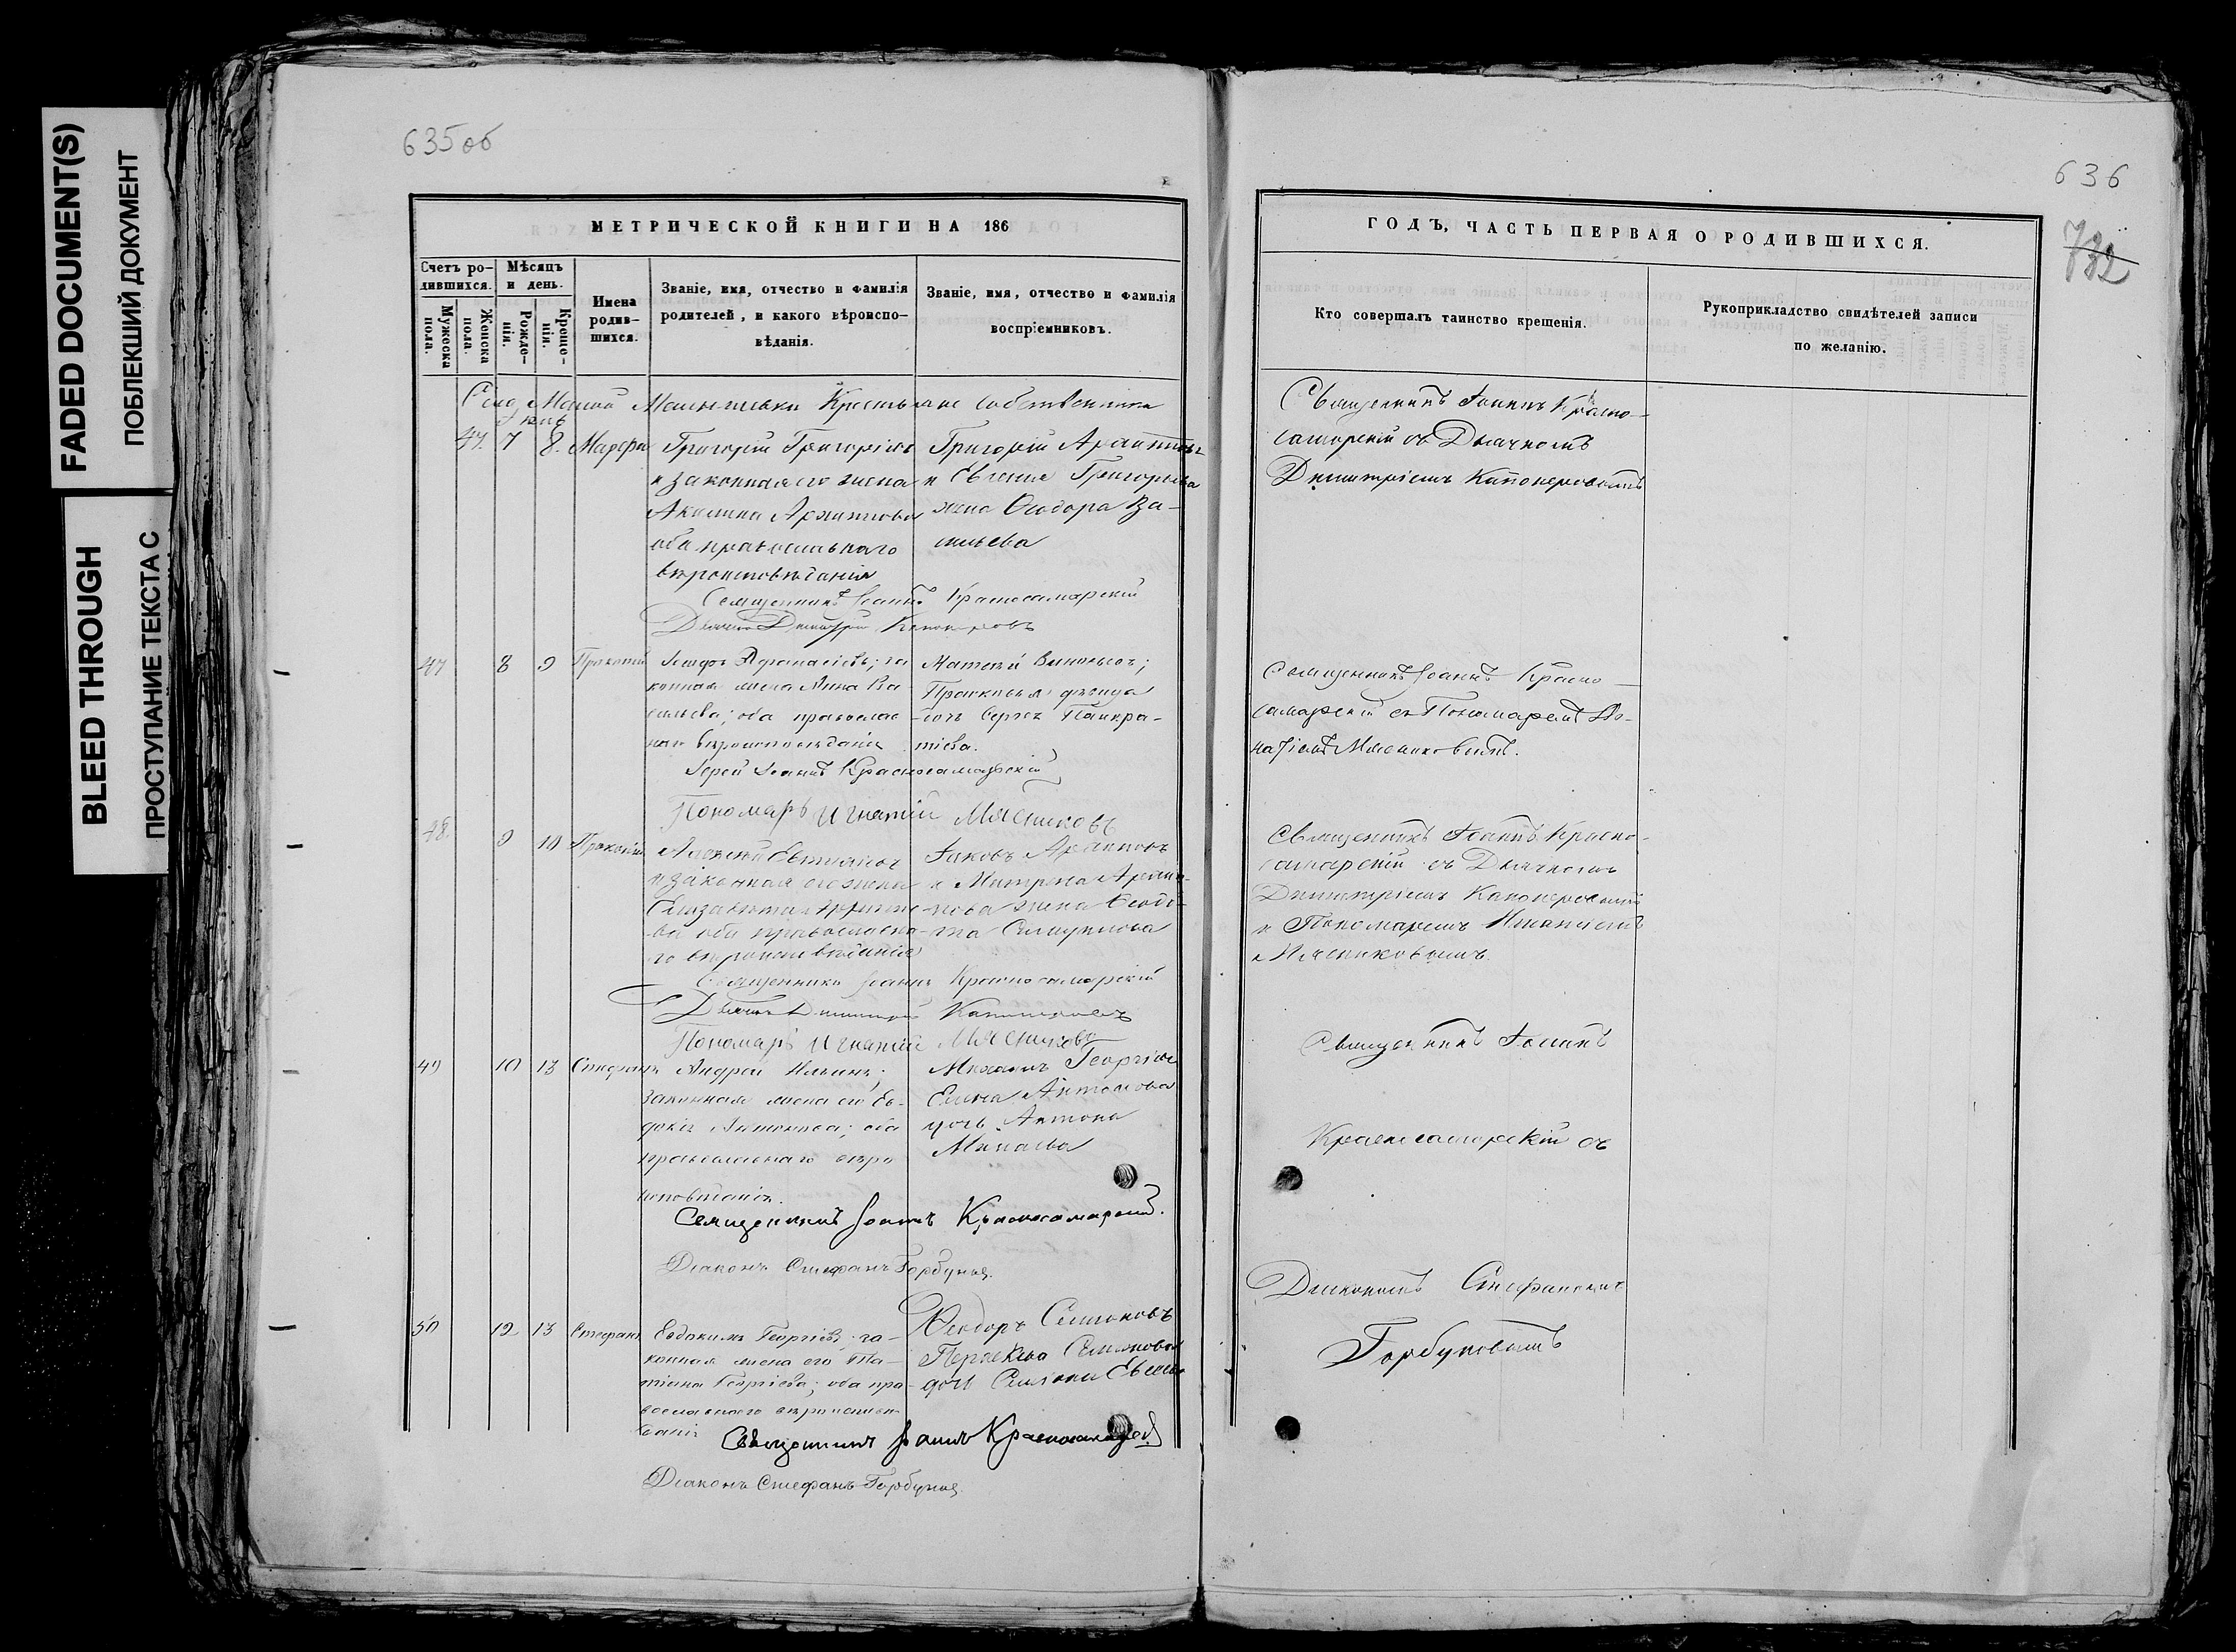 FADED DOCUMENT(S)
ПОБЛЕКШИЙ ДОКУМЕНТ
BLEED THROUGH
ПРОСТУПАНИЕ ТЕКСТА С
635об
МЕТРИЧЕСКОЙ КНИГИ НА 186
Счетъ родившихся.
Мужеска пола.
Женска пола.
Мѣсяцъ и день.
Рожденія.
Крещенія.
Имена родившихся.
Званіе, имя, отчество и фамилія
родителей, и какого вѣроиспо-
вѣданія.
Званіе, имя, отчество и фамилія
воспріемниковъ.
Малой Малышевки Крестьяне собственники
47. 7 8. Марфа
Григорій Григорьевъ
и законная его жена
Акилина Архипова
оба православнаго
вѣроисповѣданія
Григорій Архиповъ
и Евгенія Григорьева
жена Ѳеодора Ва-
сильева
Священникъ Іоаннъ Красносамарскій
Дьячекъ Димитрій Канонеровъ
47 8 9 Прокопій
Афанасіевъ; за
конная жена Анна Ва
сильева; оба православ
наго вѣроисповѣданія
Матвей
дѣвица
дочь Сергѣя Панкра-
тіева.
Іерей Іоаннъ Красносамарскій
Пономарь Игнатій Мясниковъ
48 9 10 Прокопій
Алексѣй
и законная его жена
Елизавета
ва оба православна
го вѣроисповѣданія
Іаковъ Архиповъ
и Матрена Архи-
пова жена Ѳеодо-
та
Священникъ Іоаннъ Красносамарскій
Дьячекъ Димитрій Канонеровъ
Пономарь Игнатій Мясниковъ
49 10 13 Стефанъ
Андрей Ильинъ;
законная жена его Ев-
докія Антонова; оба
православнаго вѣро
исповѣданія.
Михаилъ Георгіевъ
Елена Антонова
дочь Антона
Минаева
Священникъ Іоаннъ Красносамарскій.
Діаконъ Стефанъ Горбуновъ.
50 12 13 Стефанъ
Евдокимъ Георгіевъ; за-
конная жена его Та-
тіана Георгіева; оба пра
вославнаго вѣроисповѣ
данія
Ѳеодоръ Симоновъ
Параскева Симонова
дочь Симона
Священникъ Іоаннъ Красносамарскій
Діаконъ Стефанъ Горбуновъ
636
732
ГОДЪ, ЧАСТЬ ПЕРВАЯ О РОДИВШИХСЯ.
Кто совершалъ таинство крещенія.
Рукоприкладство свидѣтелей записи
по желанію.
Священникъ Іоаннъ Красно-
самарскій съ Дьячкомъ
Димитріемъ Канонеровымъ
Священникъ Іоаннъ Красно
самарскій съ Пономаремъ Иг-
натіемъ Мясниковымъ.
Священникъ Іоаннъ Красно-
самарскій съ Дьячкомъ
Димитріемъ Канонеровымъ
и Пономаремъ Игнатіемъ
Мясниковымъ.
Священникъ Іоаннъ
Красносамарскій съ
Діакономъ Стефаномъ
Горбуновымъ